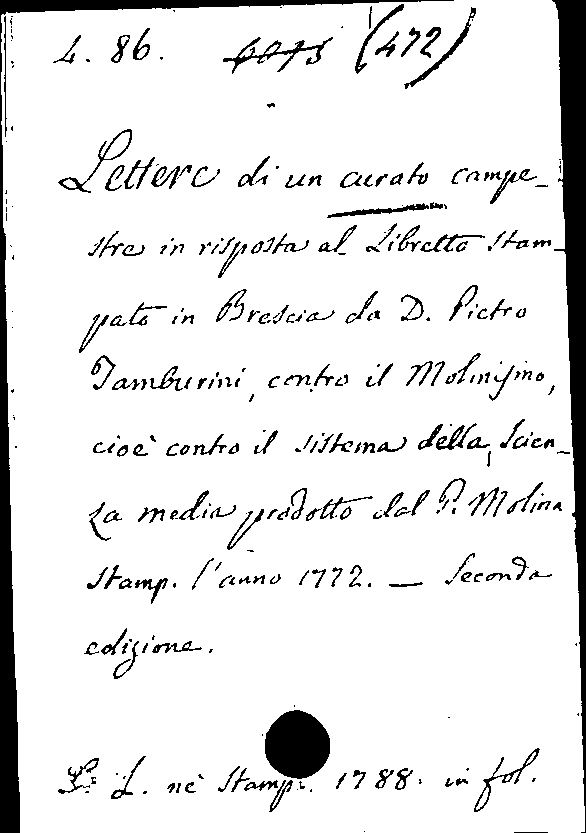 4. 86. 6075 (472)
Lettere di un curato campe-
stre in risposta al Libretto stam-
pato in Brescia da D. Pietro
Tamburini, contro il Molinismo,
cioè contro il sistema della Scien-
za media prodotto dal P. Molina
stamp. l'anno 1772. — Seconda
edizione.
S. L. nè Stamp. 1788. in fol.